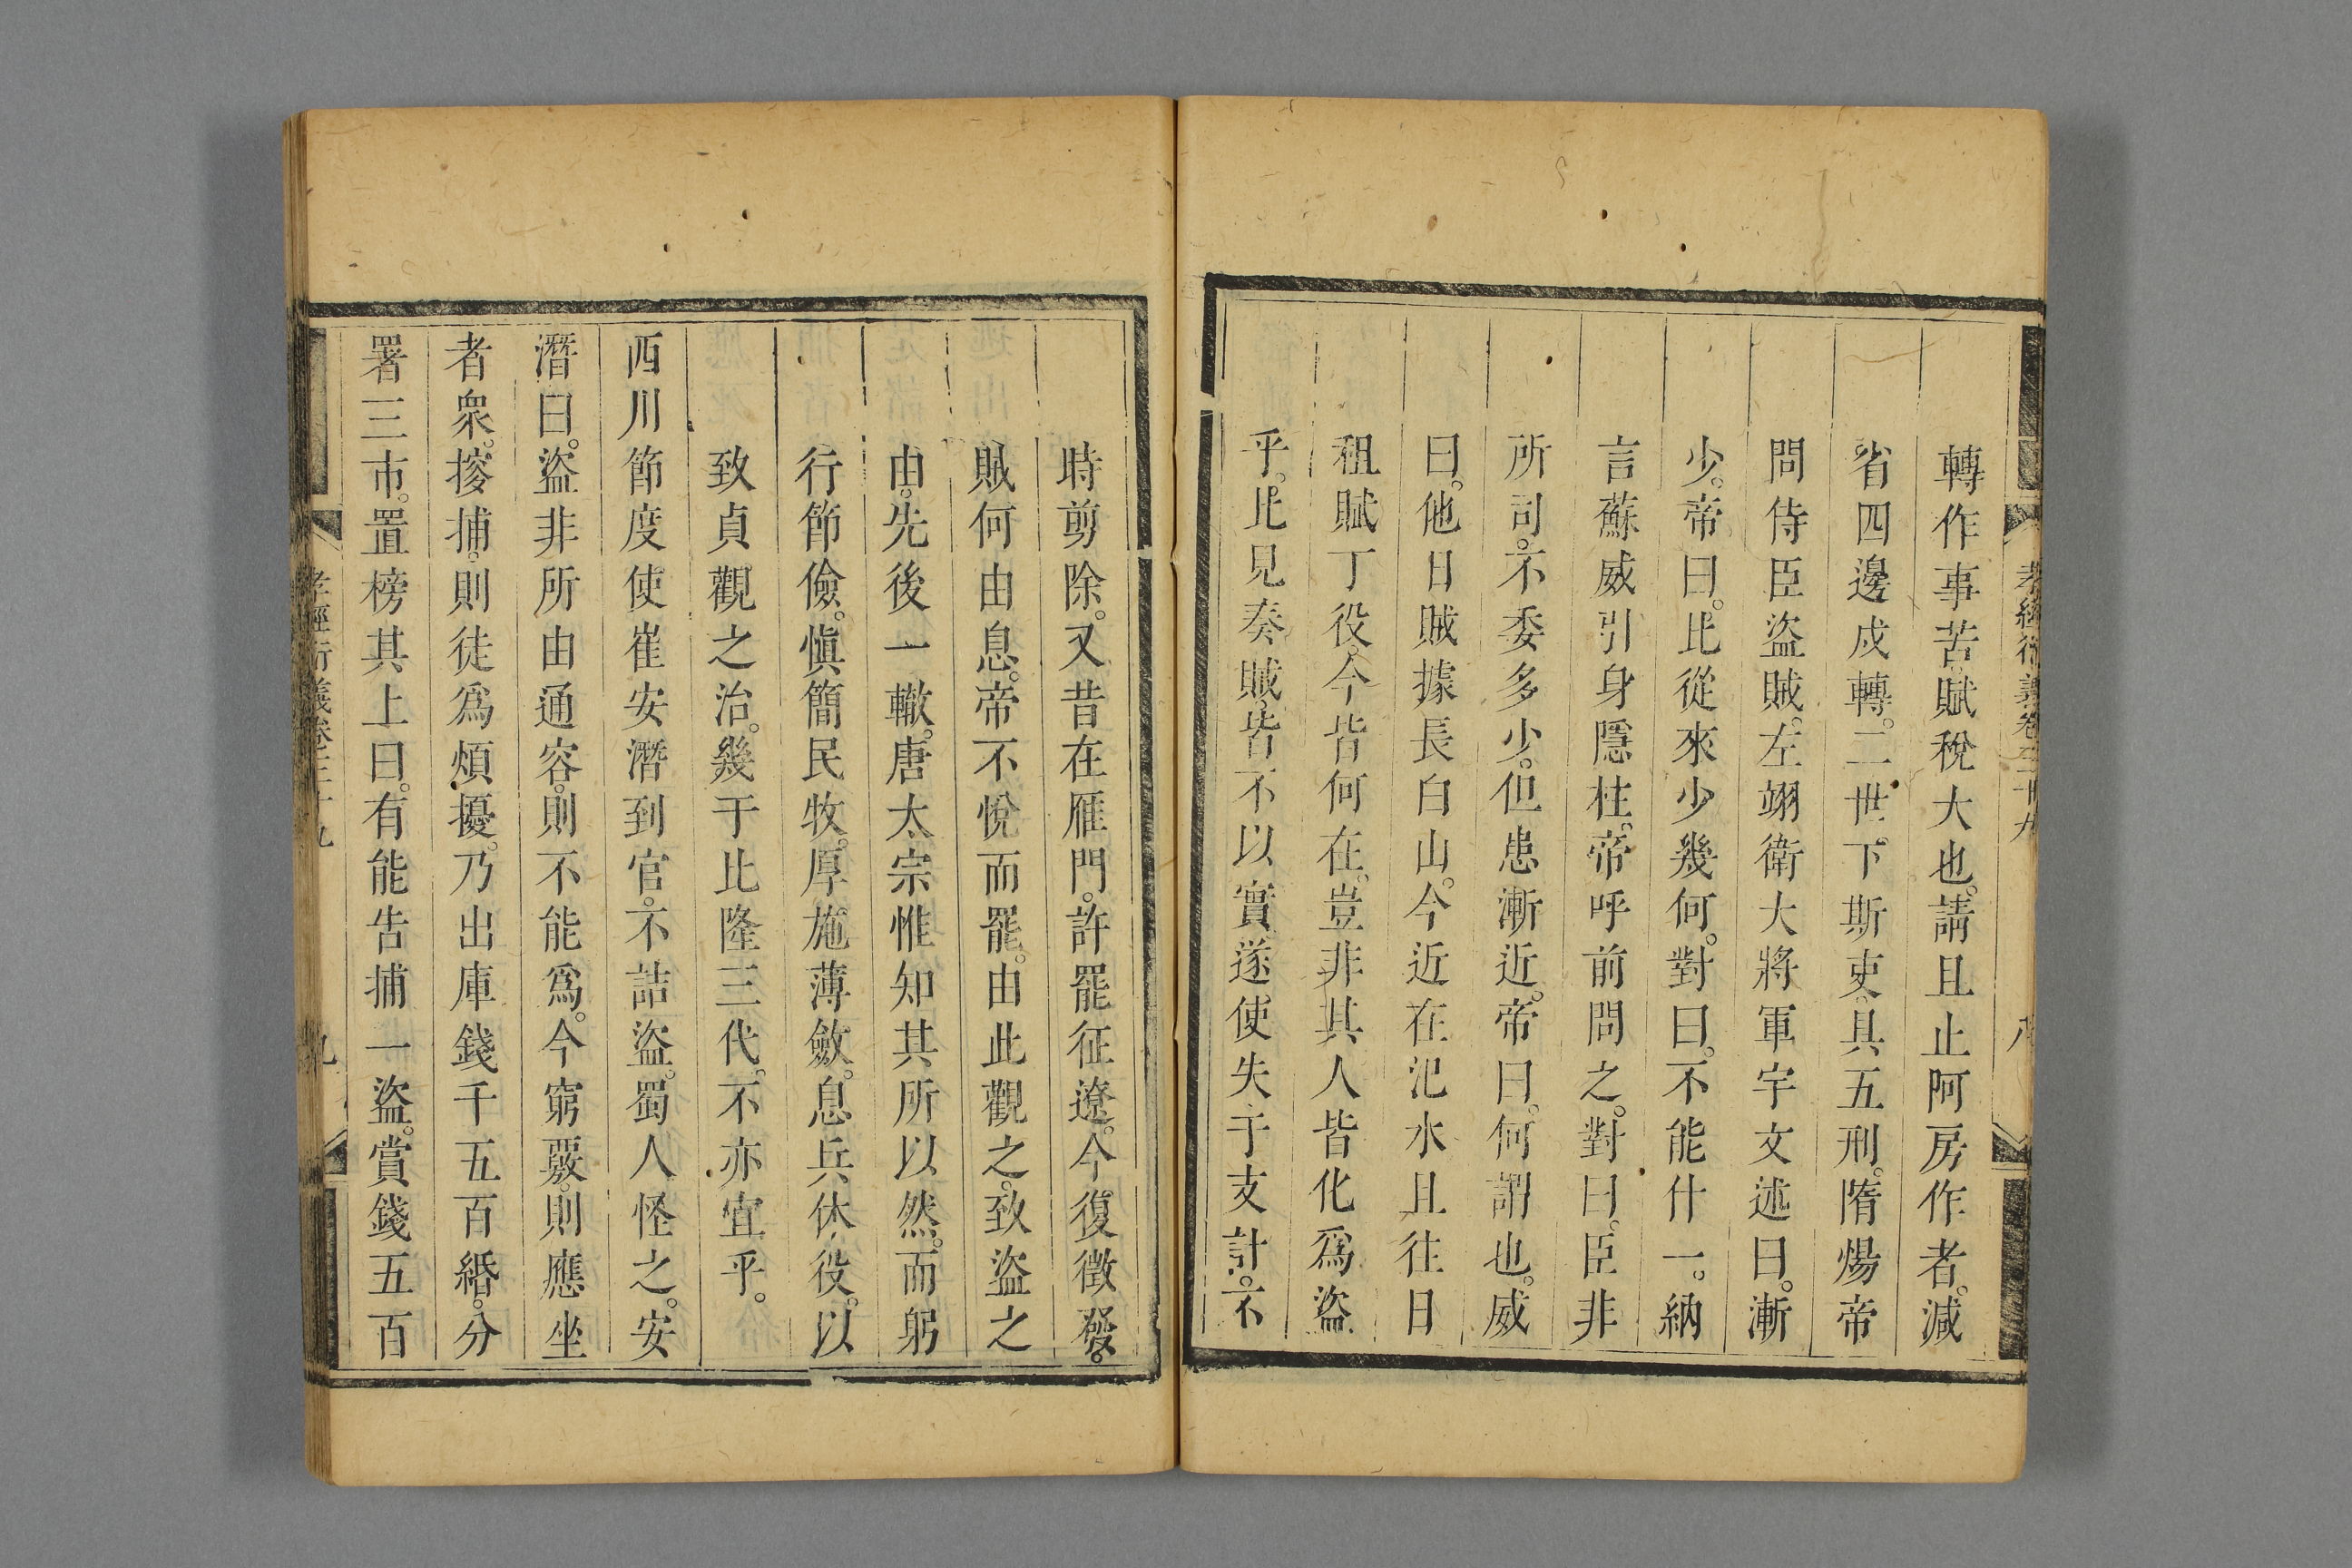 轉作事苦賦稅大也請且止阿房作者減
省四邊戍轉二世下斯吏具五刑隋煬帝
問侍臣盜賊左翊衛大將軍宇文述曰漸
少帝曰比從來少幾何對曰不能什一納
言蘇威引身隱柱帝呼前問之對曰臣非
所司不委多少但患漸近帝曰何謂也威
曰他日賊據長白山今近在汜水且往日
租賦丁役今皆何在豈非其人皆化爲盜
乎比見奏賊皆不以實遂使失于支計不
時剪除又昔在雁門許罷征遼今復徵發
賊何由息帝不悅而罷由此觀之致盜之
由先後一轍唐太宗惟知其所以然而躬
行節儉慎簡民牧厚施薄斂息兵休役以
致貞觀之治幾于比隆三代不亦宜乎
西川節度使崔安潛到官不詰盜蜀人怪之安
潛曰盜非所由通容則不能爲今窮覈則應坐
者衆搜捕則徒爲煩擾乃出庫錢千五百緡分
署三市置榜其上曰有能告捕一盜賞錢五百
孝經衍義卷三十九
九